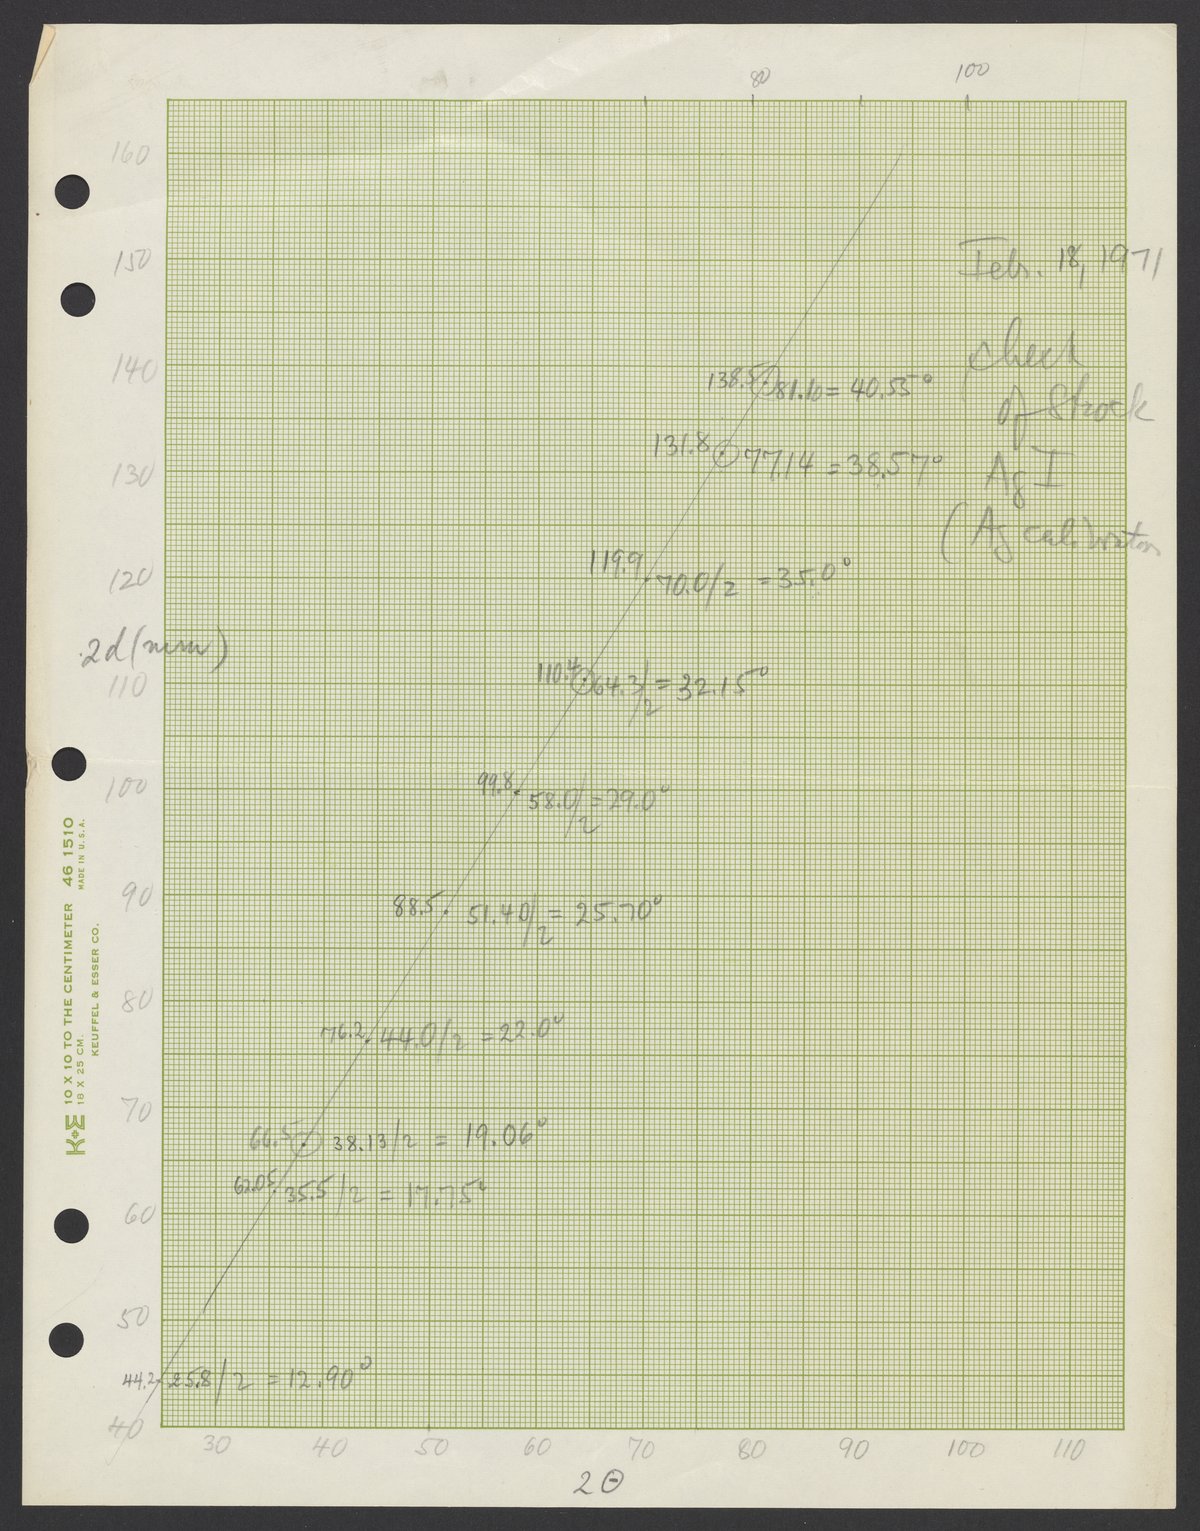 80 100
160
Feb. 18, 1971
150
check
140
138.5 81.10 = 40.55°
of Strock
131.8 77.14 = 38.57°
130
Ag I
(Ag calibration
119.9 70.0/2 = 35.0°
120
2d (mm)
110.4 64.3/2 = 32.15°
110
99.8 58.0/2 = 29.0°
100
90
88.5 51.40/2 = 25.70°
80
76.2 44.0/2 = 22.0°
70
66.5 38.13/2 = 19.06°
62.05 35.5/2 = 17.75°
60
50
44.2 25.8/2 = 12.90°
40
30 40 50 60 70 80 90 100 110
2Θ
K+E 10 X 10 TO THE CENTIMETER 46 1510
18 X 25 CM. MADE IN U.S.A.
KEUFFEL & ESSER CO.